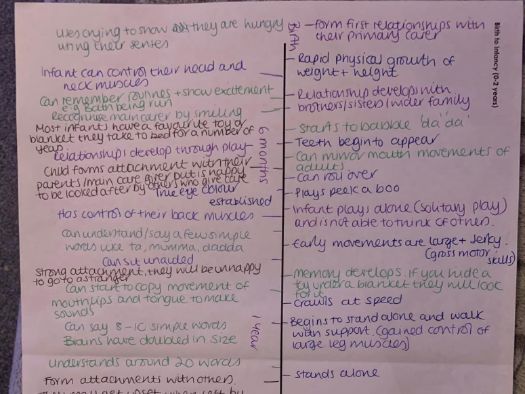 Uses crying to show they are hungry
using their senses
Infant can control their head and
neck muscles
Can remember routines + show excitement
e.g Bath being run
Recognise main carer by smiling
Most infants have a favourite toy or
blanket they take to bed for a number of
years.
Relationships develop through play
Child forms attachment with their
parents/main care giver but is happy
to be looked after by others who give care
True eye colour
established
Has control of their back muscles
Can understand/say a few simple
words like ta, mumma, dadda
Can sit unaided
strong attachment, they will be unhappy
to go to a stranger
Can start to copy movement of
mouth, lips and tongue to make
sounds
Can say 8-10 simple words
Brains have doubled in size
Understands around 20 words
Form attachments with others.
Birth
6 months
1 year
form first relationships with
their primary carer
Rapid physical growth of
weight + height
Relationship develops with
brothers/sisters/wider family
starts to babble 'da' da'
Teeth begin to appear
Can mirror mouth movements of
adults
Can roll over
Plays peek a boo
Infant plays alone (solitary play)
and is not able to think of others.
Early movements are large + Jerky.
(gross motor skills)
memory develops. if you hide a
toy under a blanket they will look
for it
Crawls at speed
Begins to stand alone and walk
with support (gained control of
large leg muscles)
stands alone
Birth to infancy (0-2 years)